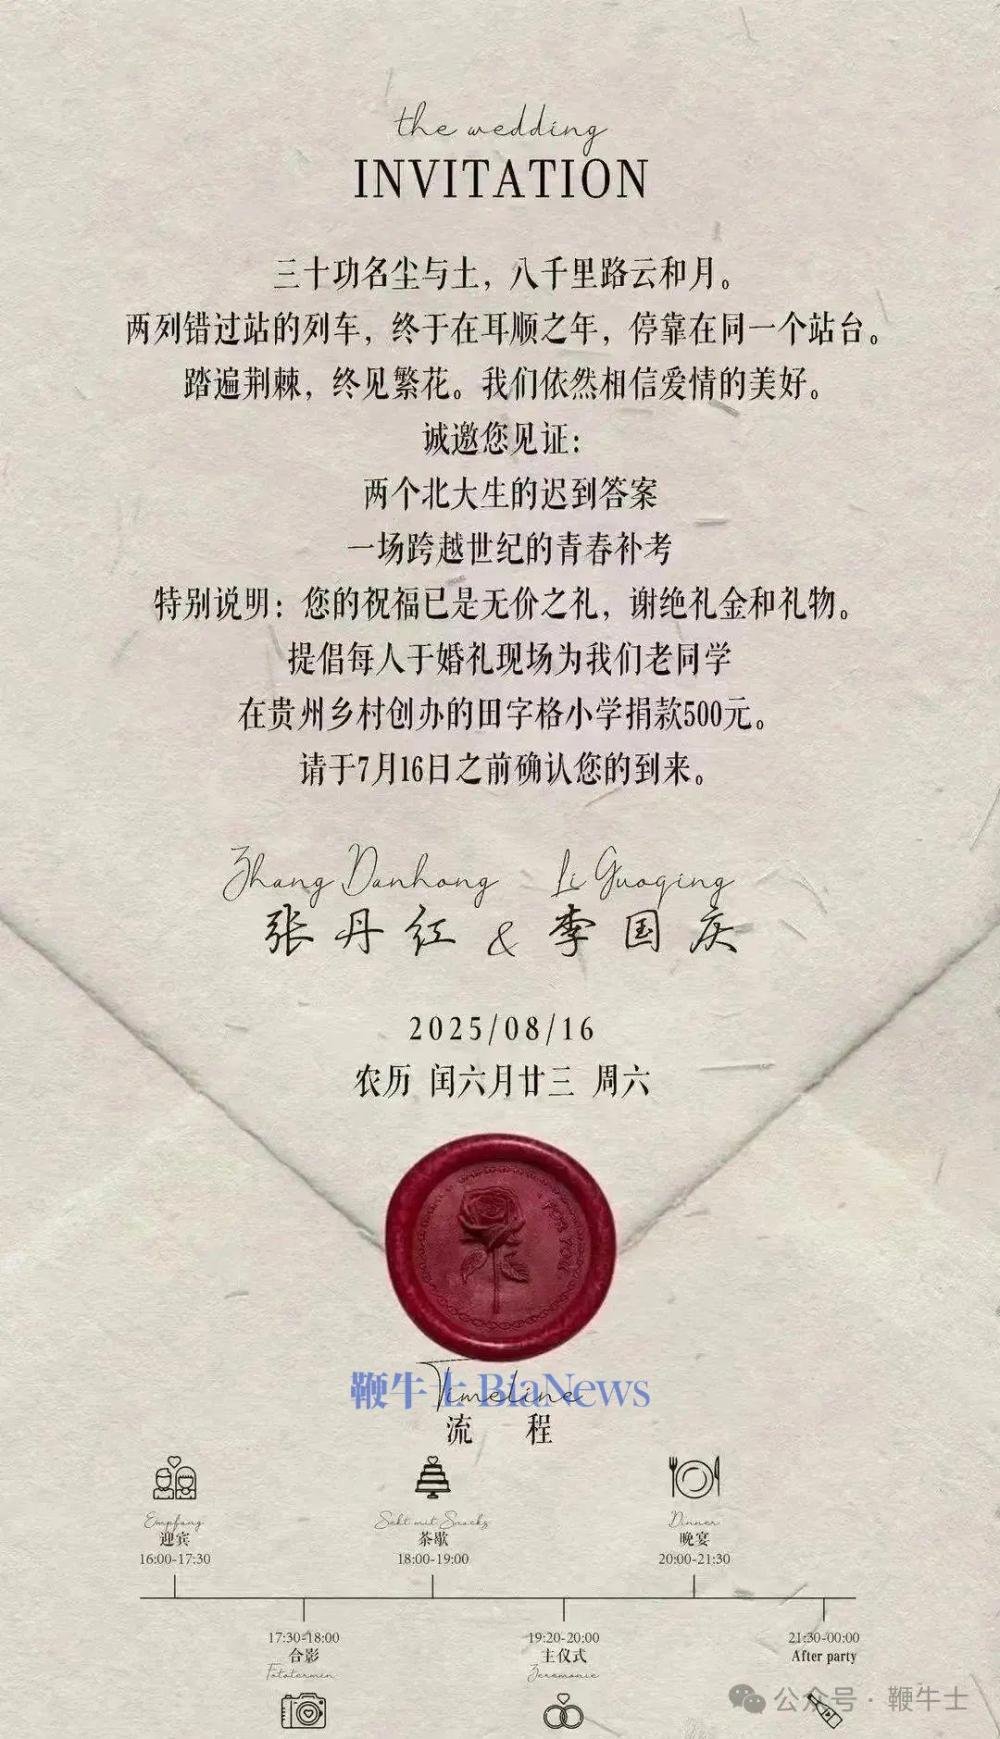 the wedding
INVITATION
三十功名尘与土，八千里路云和月。
两列错过站的列车，终于在耳顺之年，停靠在同一个站台。
踏遍荆棘，终见繁花。我们依然相信爱情的美好。
诚邀您见证：
两个北大生的迟到答案
一场跨越世纪的青春补考
特别说明：您的祝福已是无价之礼，谢绝礼金和礼物。
提倡每人于婚礼现场为我们老同学
在贵州乡村创办的田字格小学捐款500元。
请于7月16日之前确认您的到来。
Zhang Danhong Li Guoqing
张丹红 & 李国庆
2025/08/16
农历 闰六月廿三 周六
FOR YOU
鞭牛士 BiaNews
Timeline
流程
Empfang
迎宾
16:00-17:30
Sekt mit Snacks
茶歇
18:00-19:00
Dinner
晚宴
20:00-21:30
17:30-18:00
合影
Fototermin
19:20-20:00
主仪式
Zeremonie
21:30-00:00
After party
公众号 · 鞭牛士